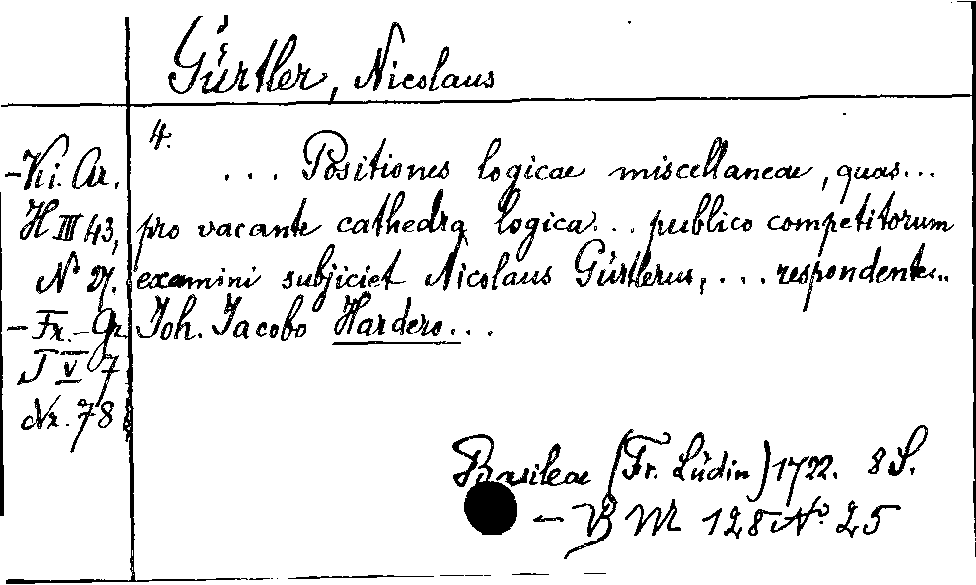 Gürtler, Nicolaus
4.
... Positiones logicae miscellaneae, quas...
pro vacante cathedra logica... publico competitorum
examini subjiciet Nicolaus Gürtlerus, ... respondente...
Joh. Jacobo Hardero...
- Ki. Ar.
H III 43,
N° 27.
- Fr.-Gr.
J V 7
Nr. 78
Basileae (Fr. Lüdin) 1722. 8 S.
- VB M 128 N° 25